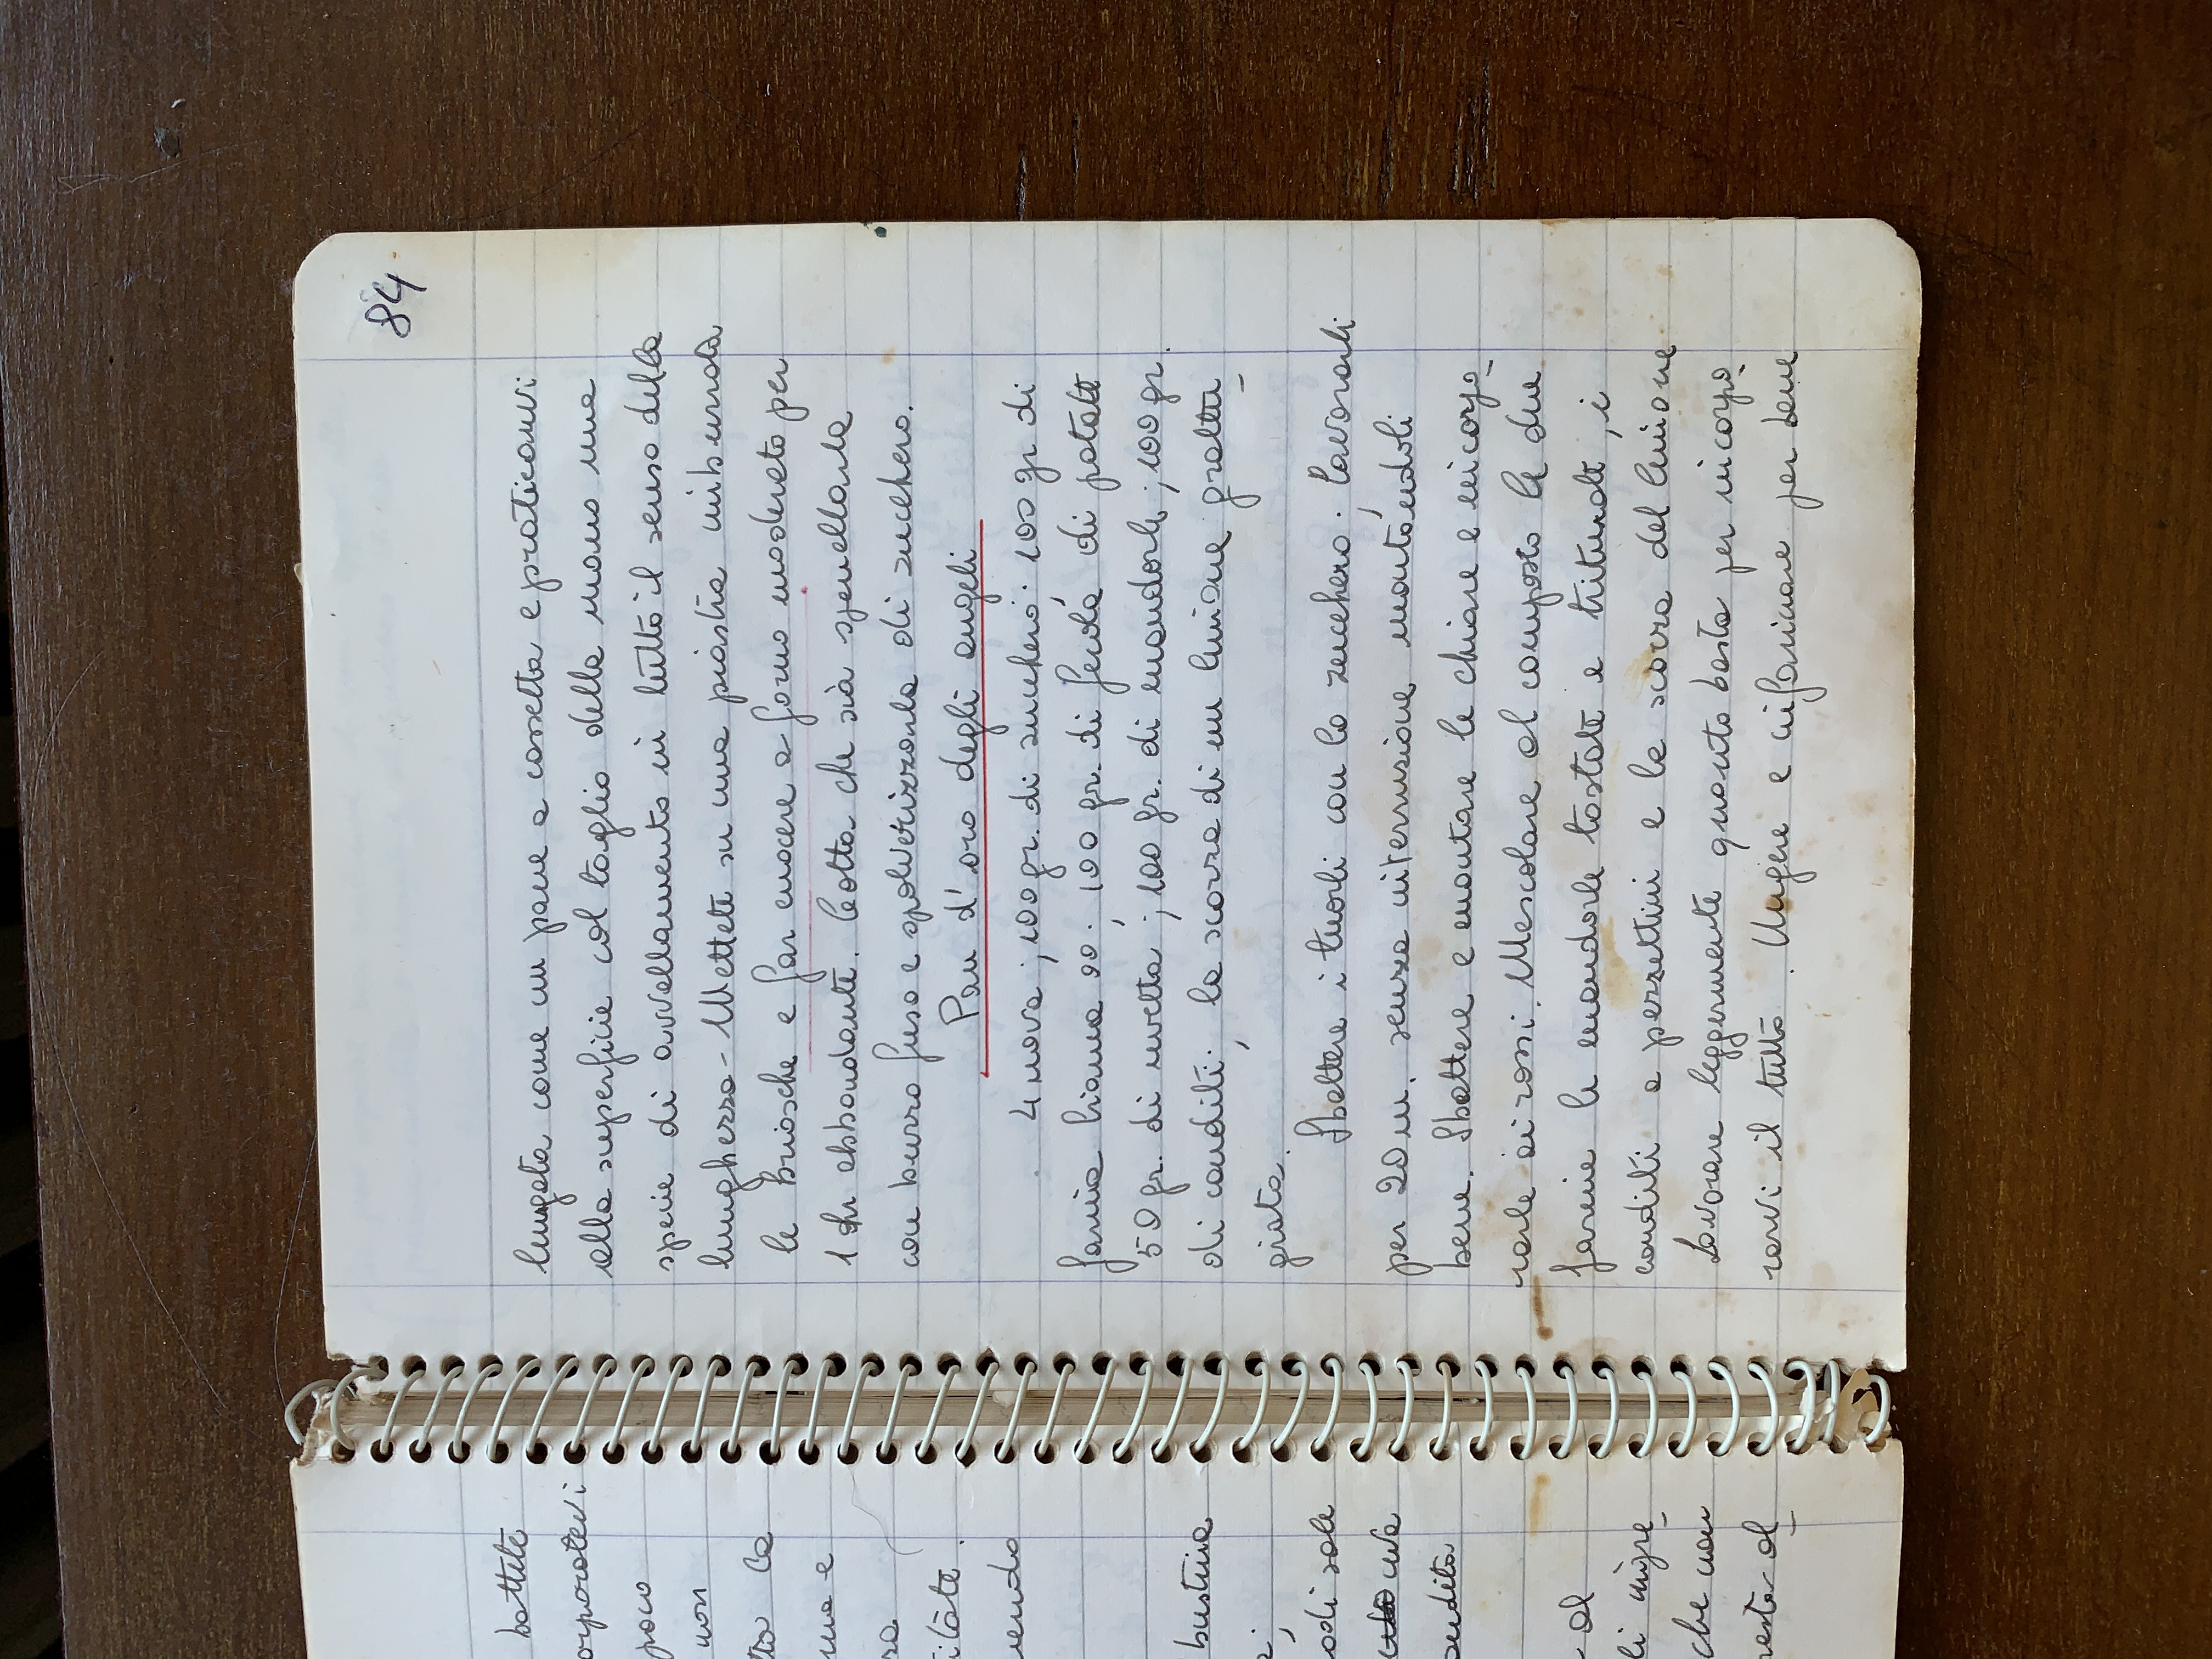 battete
orporatevi
poco
non
tto la
rma e
za
titate.
uendo
bustina
a;
odi sale
uva
andita
al
li ingre_
che non
resta al_
84
lungata come un pane a cassetta e praticarvi
alla superficie col taglio della mano una
specie di avvallamento in tutto il senso della
lunghezza - Mettete su una piastra imburrata
le brioscke e far cuocere a forno moderato per
1 hr abbondante. Cotta che sià spenellarla
con burro fuso e spolverizzarla di zucchero.
Pan d'oro degli angeli
4 uova ; 100 gr. di zucchero ; 100 gr di
farina bianca 00 ; 100 gr. di fecola di patate
50 gr. di uvetta ; 100 gr. di mandorle ; 100 gr.
di canditi ; la scorza di un limone grattu_
giata.
Sbattere i tuorli con lo zucchero ; lavorarli
per 20 m. senza interruzione montandoli
bene. Sbattere e montare le chiare e incorpo_
rarle ai rossi. Mescolare al composto le due
farine le mandorle tostate e triturate , i
canditi a pezzettini e la scorza del limone
Lavorare leggermente quanto basta per incorpo_
rarvi il tutto . Ungere e infarinare per bene